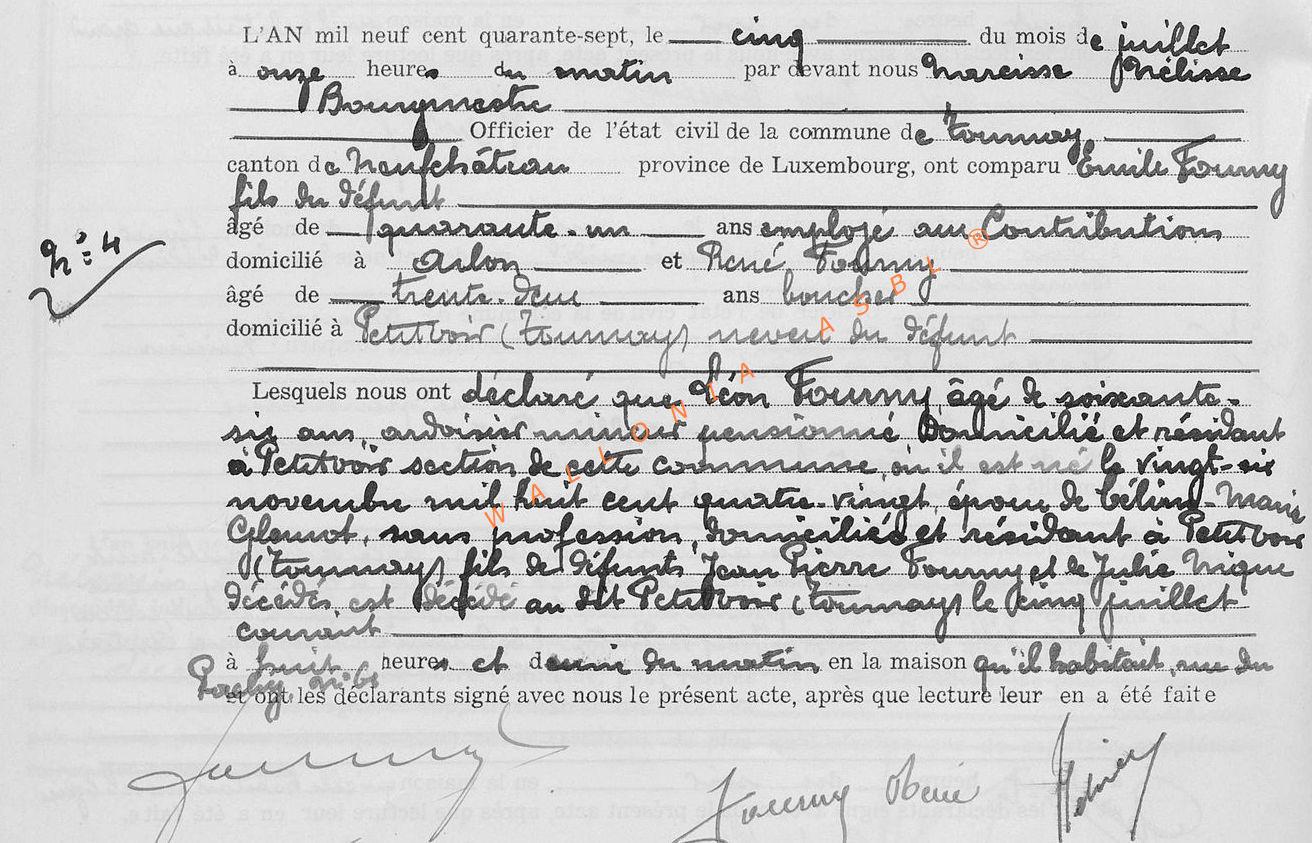 L'AN mil neuf cent quarante-sept, le cinq du mois de juillet
à onze heures du matin par devant nous Narcisse Mélisse
Bourgmestre
Officier de l'état civil de la commune de Tournay
canton de Neufchâteau province de Luxembourg, ont comparu Emile Fourny
fils du défunt
âgé de quarante-un ans employé aux Contributions
N° 4
domicilié à Arlon et René Fourny
âgé de trente-deux ans boucher
domicilié à Petitvoir (Tournay) neveu du défunt
Lesquels nous ont déclaré que Léon Fourny âgé de soixante-
six ans, ardoisier mineur pensionné Domicilié et résidant
à Petitvoir section de cette commune, où il est né le vingt-six
novembre mil huit cent quatre-vingt, époux de Céline-Marie
, sans profession, domiciliée et résidant à Petitvoir
(Tournay) fils de défunts Jean Pierre Fourny et de Julie
décédés, est décédé au dit Petitvoir (Tournay) le cinq juillet
courant
à huit heures et demi du matin en la maison qu'il habitait, rue du
et ont les déclarants signé avec nous le présent acte, après que lecture leur en a été faite
Fourny René
WALLONIA ASBL ®